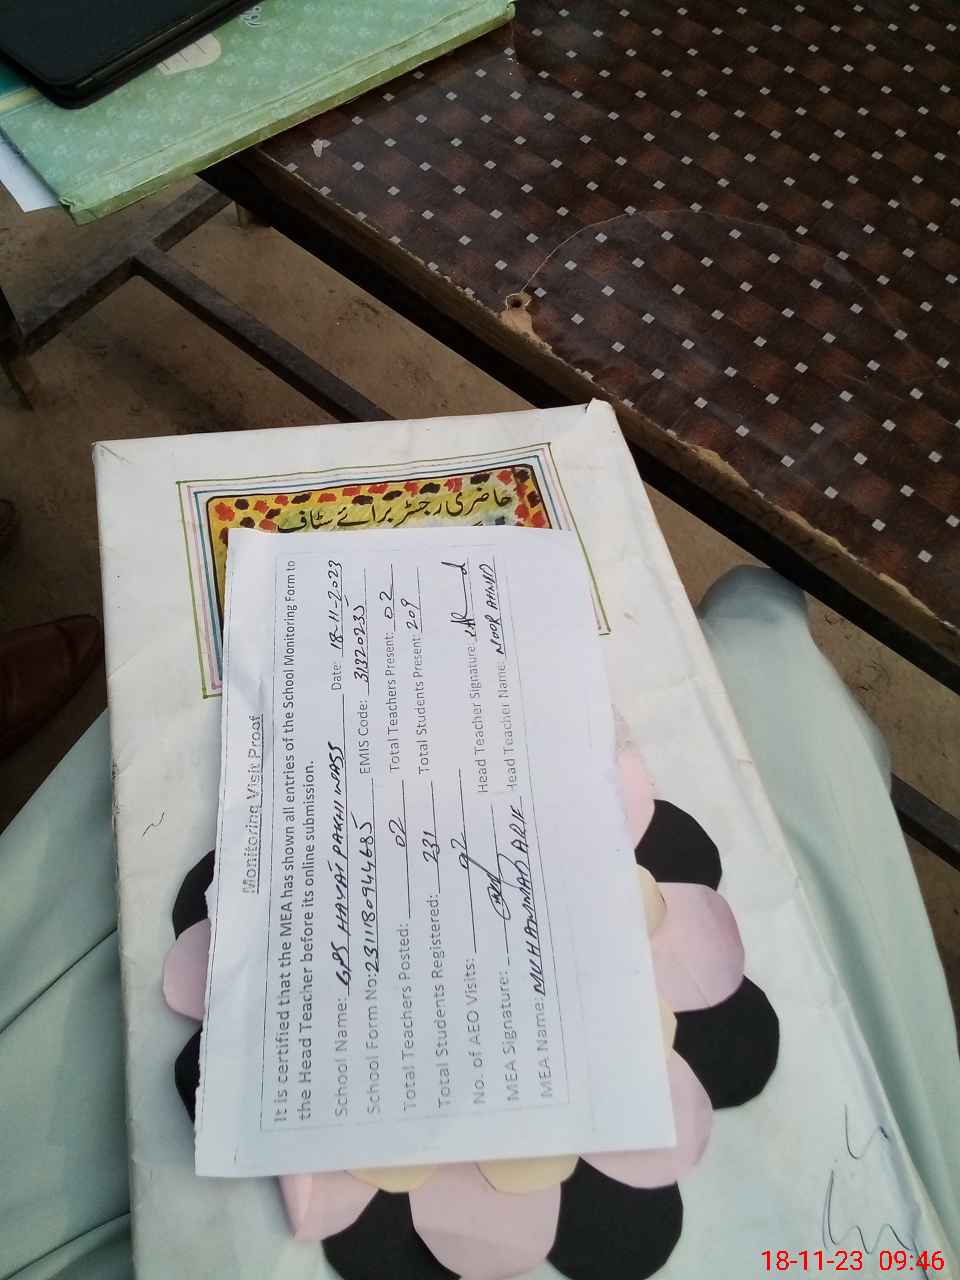 حاضری رجسٹر برائے سٹاف
Monitoring Visit Proof
It is certified that the MEA has shown all entries of the School Monitoring Form to
the Head Teacher before its online submission.
School Name: GPS HAYAT PAKHI WASS Date: 18-11-2023
School Form No: 2311180944685 EMIS Code: 31320235
Total Teachers Posted: 02 Total Teachers Present: 02
Total Students Registered: 231 Total Students Present: 209
No. of AEO Visits: 02
MEA Signature: Head Teacher Signature:
MEA Name: MUHAMMAD ARIF Head Teacher Name: NOOR AHMAD
18-11-23 09:46